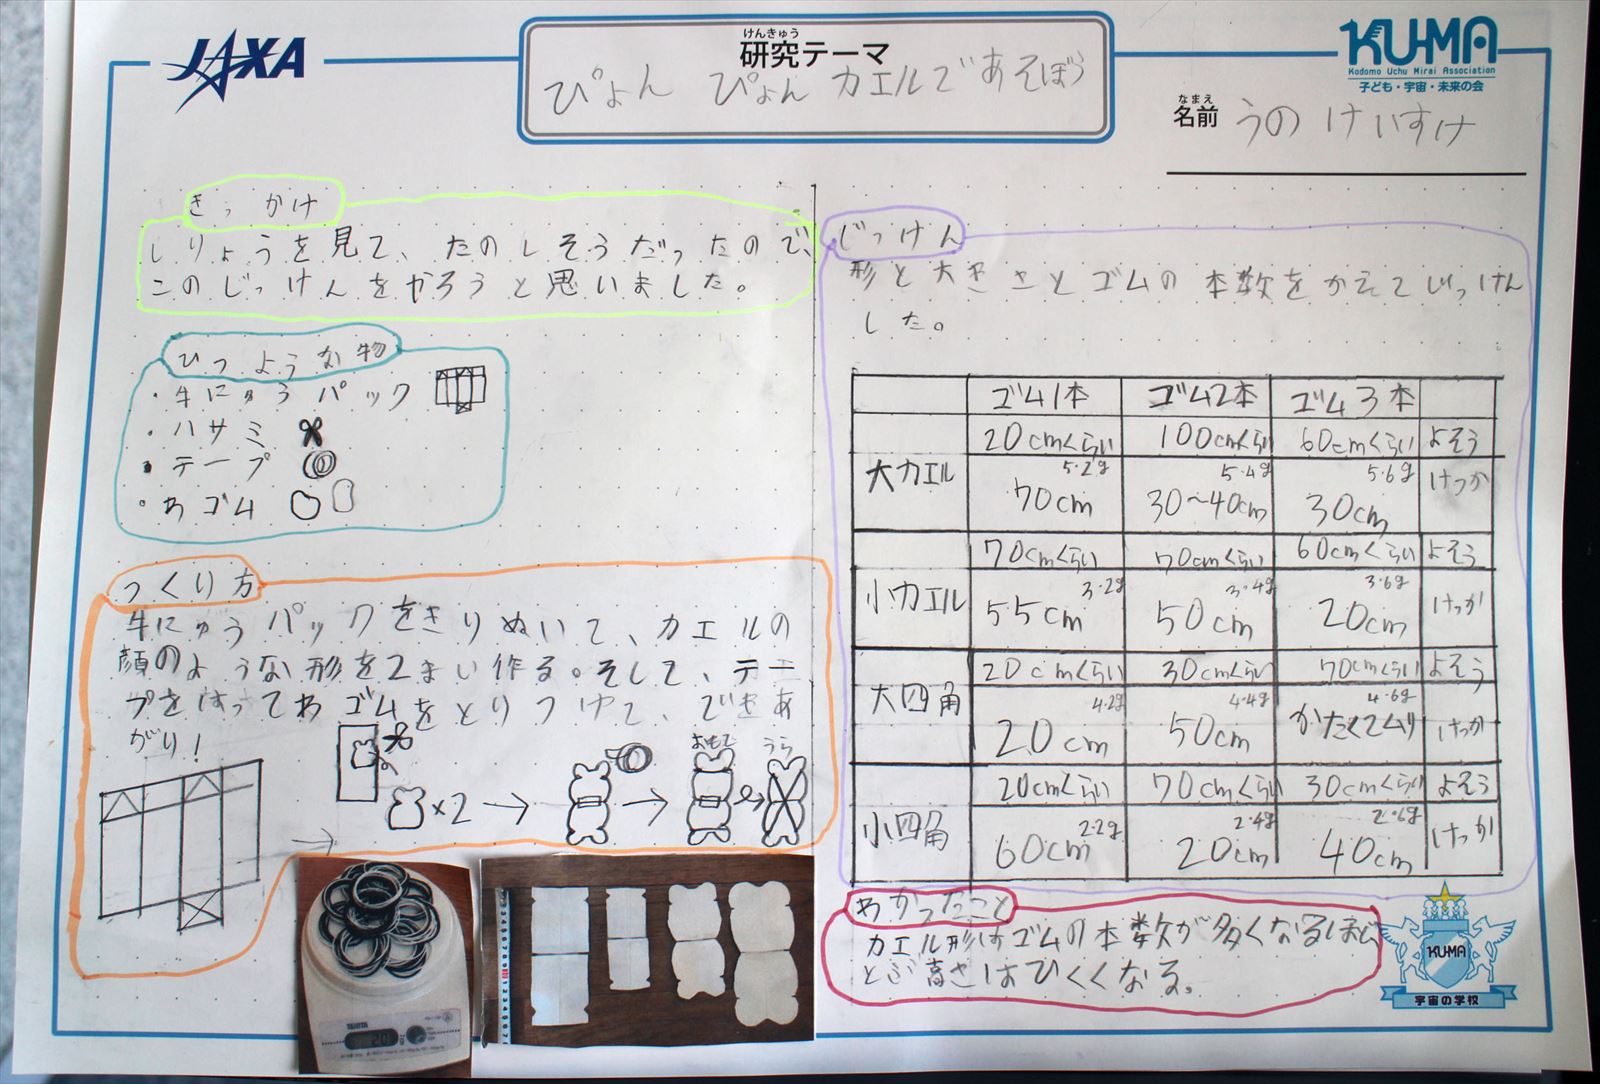 JAXA
けんきゅう
研究テーマ
ぴょん ぴょん カエルであそぼう
KU-MA
Kodomo Uchu Mirai Association
子ども・宇宙・未来の会
なまえ
名前 うの けいすけ
きっかけ
しりょうを見て、たのしそうだったので、
このじっけんをやろうと思いました。
ひつような物
・牛にゅうパック
・ハサミ
・テープ
・わゴム
つくり方
牛にゅうパックをきりぬいて、カエルの
顔のような形を2まい作る。そして、テー
プをはってわゴムをとりつけて、できあ
がり!
×2
おもて
うら
じっけん
形と大きさとゴムの本数をかえてじっけん
した。
ゴム1本 ゴム2本 ゴム3本
大カエル
20cmくらい 100cmくらい 60cmくらい よそう
5.2g 5.4g 5.6g
70cm 30〜40cm 30cm けっか
小カエル
70cmくらい 70cmくらい 60cmくらい よそう
3.2g 3.4g 3.6g
55cm 50cm 20cm けっか
大四角
20cmくらい 30cmくらい 70cmくらい よそう
4.2g 4.4g 4.6g
20cm 50cm かたくてムリ けっか
小四角
20cmくらい 70cmくらい 30cmくらい よそう
2.2g 2.4g 2.6g
60cm 20cm 40cm けっか
わかったこと
カエル形はゴムの本数が多くなるほど
とぶ高さはひくくなる。
TANITA
KU-MA
宇宙の学校